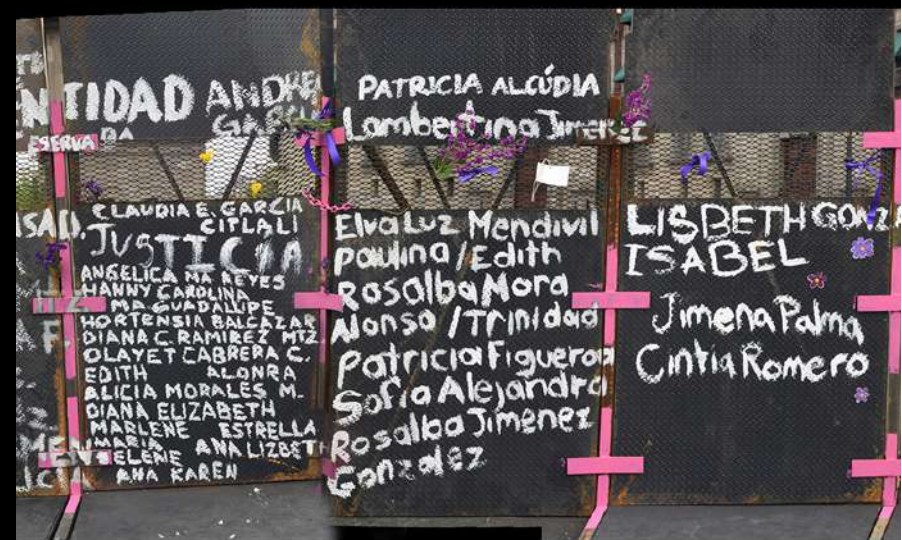 NTIDAD
ESERVA
ANDRE
GAR
CLAUDIA E. GARCIA
CITLALI
JUSTICIA
ANGELICA MA REYES
HANNY CAROLINA
MA. GUADALUPE
HORTENSIA BALCAZAR
DIANA C. RAMIREZ MTZ
OLAYET CABRERA C.
EDITH ALONRA
ALICIA MORALES M.
DIANA ELIZABETH
MARLENE ESTRELLA
MARIA ANA LIZBET
ELENE
ANA KAREN
PATRICIA ALCÚDIA
Lambertina Jimenez
Elva Luz Mendivil
Paulina / Edith
Rosalba Mora
Alonso / Trinidad
Patricia Figueroa
Sofia Alejandra
Rosalba Jimenez
Gonzalez
LISBETH GONZA
ISABEL
Jimena Palma
Cintia Romero